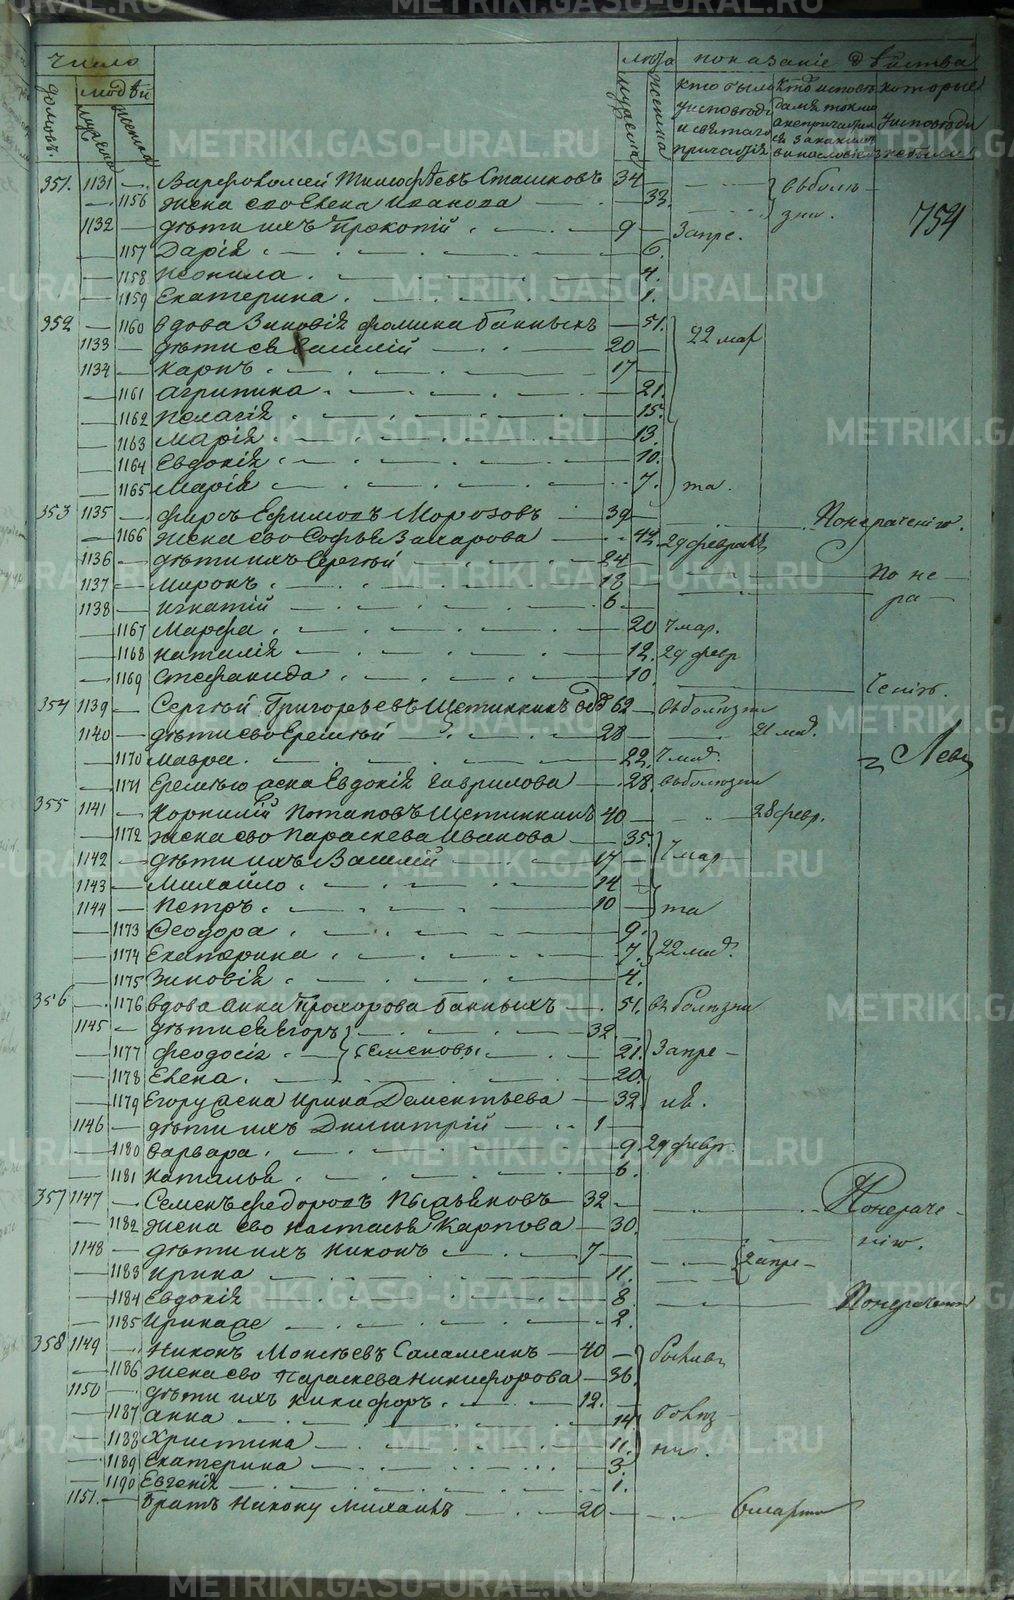 Число лѣта показаніе дѣйства
домовъ. людѣй мужеска женска мужеска женска
кто были исповѣд. и святаго причастія
которые
754
351. 1131 Варфоломей Тимофѣевъ Сташковъ 34
1156 жена его Елена Иванова 33. въ болѣзни.
1132 дѣти ихъ Прокопій 9 Запре.
1157 Дарія 6.
1158 Неонила 4.
1159 Екатерина 1.
352 1160 вдова Зиновія Фомина Банныхъ 51.
1133 дѣти ея Василій 20 22 мар
1134 Карпъ 17
1161 Агрипина 21.
1162 Пелагія 15.
1163 Марія 13.
1164 Евдокія 10.
1165 Марія 7. та.
353 1135 Фирсъ Ефимовъ Морозовъ 39 По нераченію.
1166 жена его Софья Захарова 42 29 февраля
1136 дѣти ихъ Сергѣй 24
1137 Миронъ 18 По не
1138 Игнатій 6 ра
1167 Марфа 20 7 мар.
1168 Наталія 12. 29 февр
1169 Стефанида 10. ченію.
354 1139 Сергѣй Григорьевъ Щетинкинъ вдв 62 въ болѣзни
1140 дѣти его Еремѣй 28 21 мар.
1170 Мавра 22. 7 мар.
1171 Еремѣю жена Евдокія Гаврилова 28. въ болѣзни
355 1141 Корнилій Потаповъ Щетинкинъ 40 28 февр.
1172 жена его Параскева Иванова 35.
1142 дѣти ихъ Василій 17 7 мар
1143 Михайло 14
1144 Петръ 10 та
1173 Ѳеодора 9.
1174 Екатерина 7. 22 мар.
1175 Зиновія 4.
356 1176 вдова Анна Прохорова Банныхъ 51. въ болѣзни
1145 дѣти ея Егоръ 32
1177 Феодосія Семеновы 21. Запре
1178 Елена 20.
1179 Егору жена Ирина Дементьева 32. лѣ.
1146 дѣти ихъ Димитрій 1
1180 Варвара 9. 29 февр.
1181 Наталья 6.
357 1147 Семенъ Федоровъ Пысьянковъ 32 По нераче
1182 жена его Настасья Карпова 30. нію.
1148 дѣти ихъ Никонъ 7 2 апре
1183 Ирина 11.
1184 Евдокія 8. По нераченію
1185 Ирина же 2.
358 1149 Никонъ Моисѣевъ Саламеинъ 40
1186 жена его Параскева Никифорова 36.
1150 дѣти ихъ Никифоръ 12.
1187 Анна 14.
1188 Христина 11.
1189 Екатерина 3.
1190 Евгенія 1.
1151. братъ Никону Михаилъ 20 6 марта
METRIKI.GASO-URAL.RU